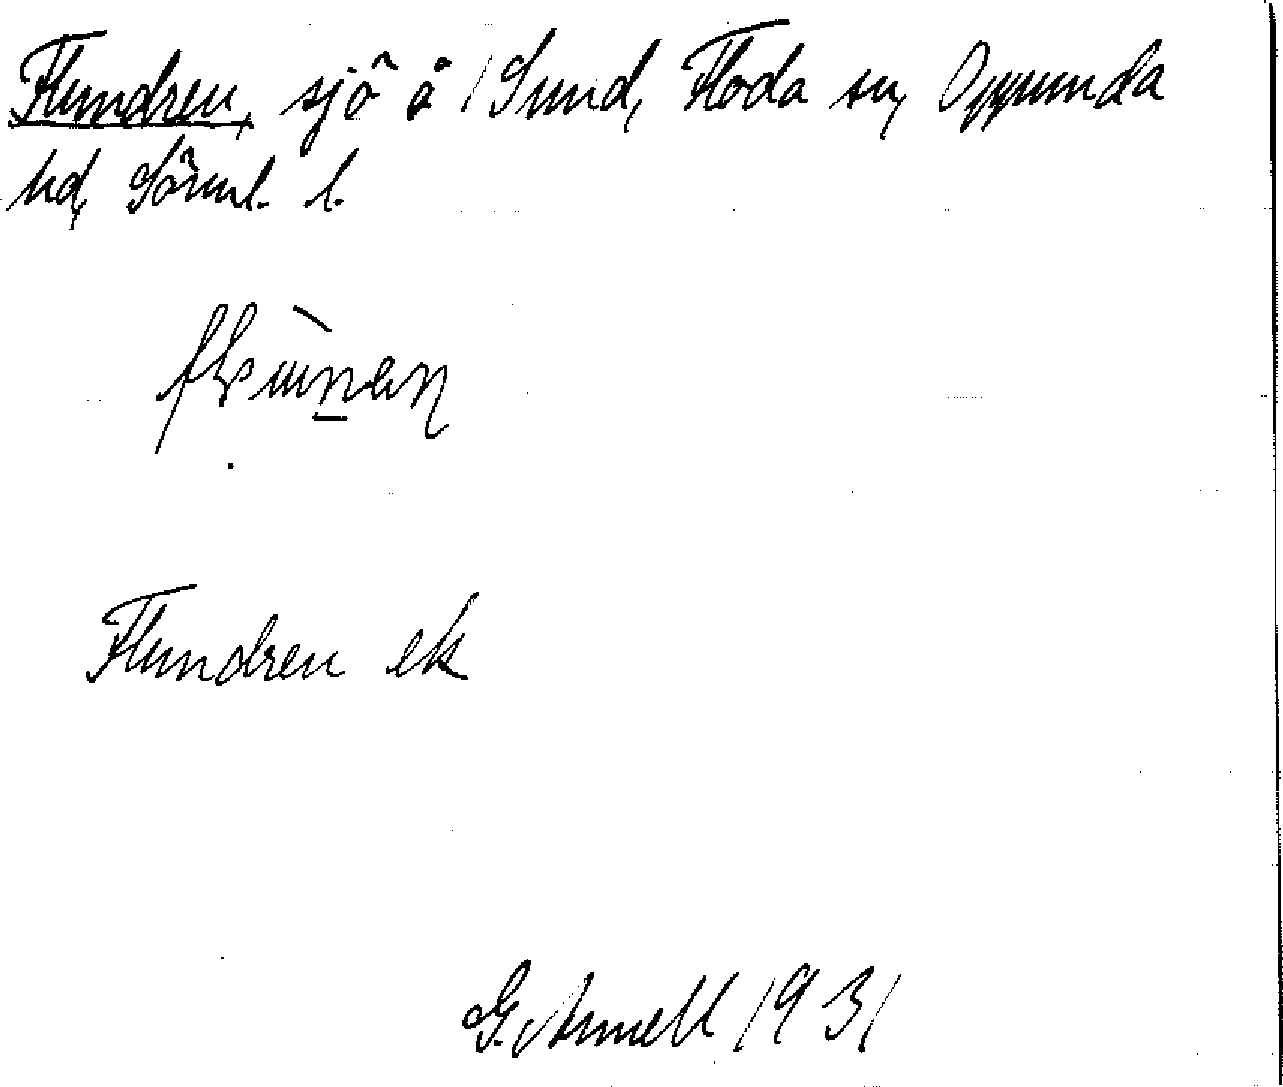 Flundren, sjö å 1 Sund, Floda sn, Oppunda
hd, Sörml. l.
Flundren ek
G. Annell 1931